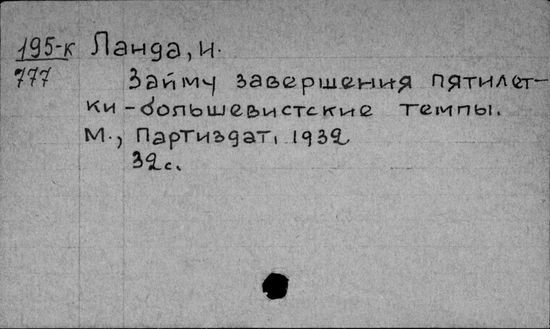 195-к Ланда, И.
777 Займу завершения пятилет-
ки - большевистские темпы.
М., Партиздат, 1932
32с.